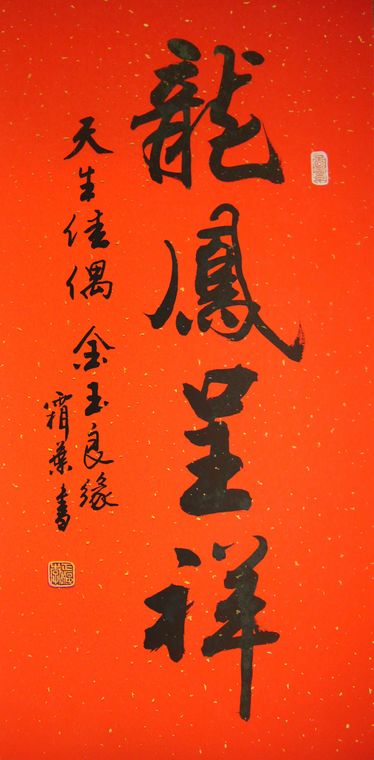 龍鳳呈祥
天生佳偶 金玉良缘
霜葉書